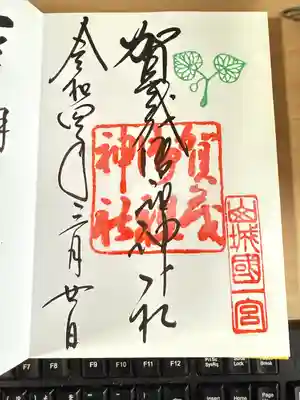 山城國一宮
賀茂御祖神社
賀茂
御祖
神社
令和四年三月廿日
F7 F8 F9 F10 F11 F12